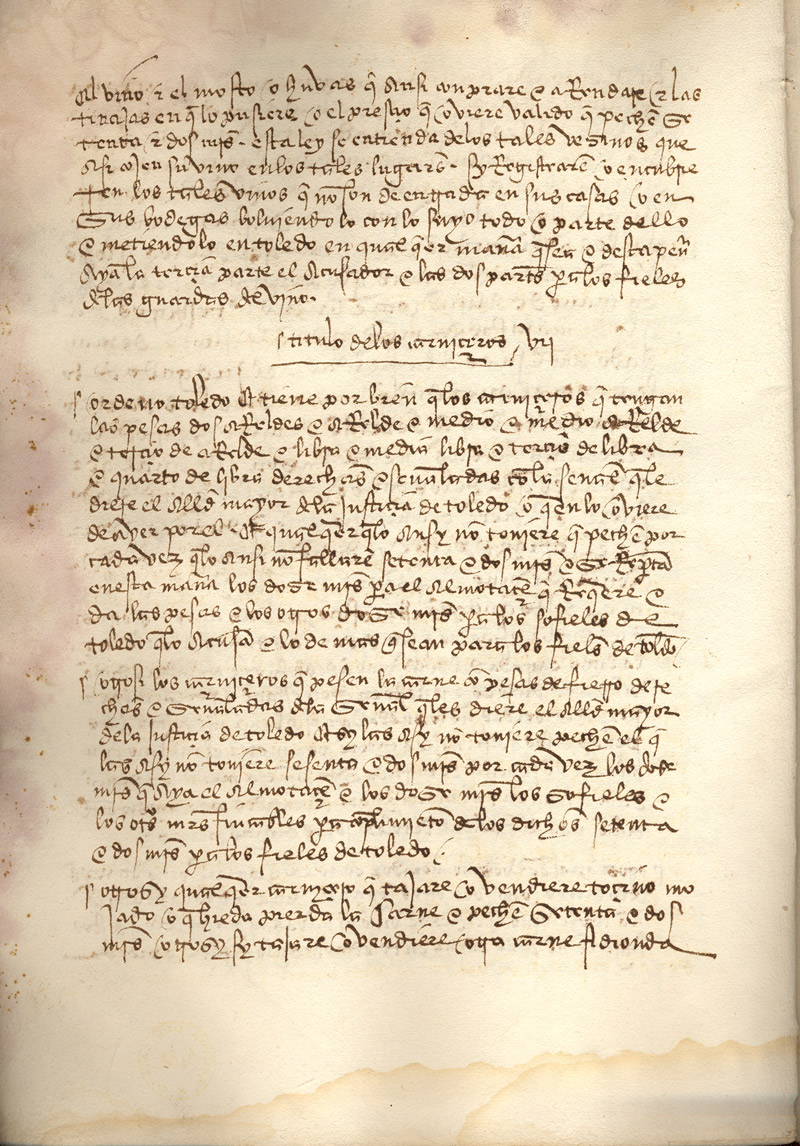 el vino e el mosto o huvas q̃ ansi conprare e aRendare e las
tinajas en q̃ lo pusiere o el presçio q̃ oviere valido q̃ pechẽ se
tenta e dos mrs̃ . esta ley se entienda de los tales vezinos que
asi cojen su vino en los tales lugarẽs . sy Registrarẽ o encubrie
ren los tales vinos q̃ non son de en gada en sus casas o en
sus bodegas bolviendo lo con lo suyo todo o parte dello
e metiendolo en toledo en qual q̃er mañã q̃ sea e desta penã
aya la terçiã parte el acusador e las dos partẽs pa los fieles
de las guardas del vino .
titulo de los carniçeros / vii
ordeno toledo et tiene por bien q̃ los carniçeros q̃ tengan
las pesas dos aReldes e aRelde e medio e medio aRelde
e terçio de aRelde e libra e media libra e terçio de libra
e quarto de libra derechas e señaladas con la señal q̃ le
diere el alld̃e mayor de la justiçia de toledo o q̃en lo oviere
de aver por el . et qual q̃er q̃ lo ansy non toviere q̃ pechẽ por
cada vez q̃ lo ansi non fallarẽ setenta e dos mrs̃ e se Reptã
en esta mañã los doze mrs̃ pa el almotaçẽ q̃ Req̃ere e
da las pesas e los otros doze mrs̃ pa los sofieles de
toledo q̃ lo acusã e lo de mas q̃ sean para los fieles de toldõ
otrosi los carniçeros q̃ pesen la carne cõ pesas de fierro dere
chas e señaladas de la señal q̃ les diere el alld̃e mayor
de la justiçia de toledo et sy las asy non toviere pechẽ el q̃
las asy non toviere setenta e dos mrs̃ por cada vez los doze
mrs̃ q̃ aya el almotaçẽ e los doze mrs̃ los sofieles e
los otrs̃ mrs̃ fincables pa conplimiẽto de los dichos setenta
e dos mrs̃ pa los fieles de toledo .
otrosy qual q̃er carniçero q̃ tajare o vendiere toçino mo
jado o q̃ hieda pierda la carne e pechẽ setenta e dos
mrs̃ otrosy sy tajare o vendiere otra carne fidionda